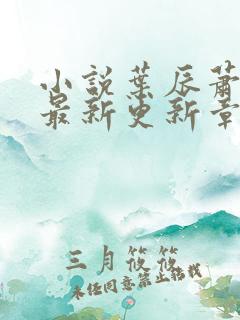 小説葉辰蕭
最新更新章
三月筱筱
未经同意禁止转载